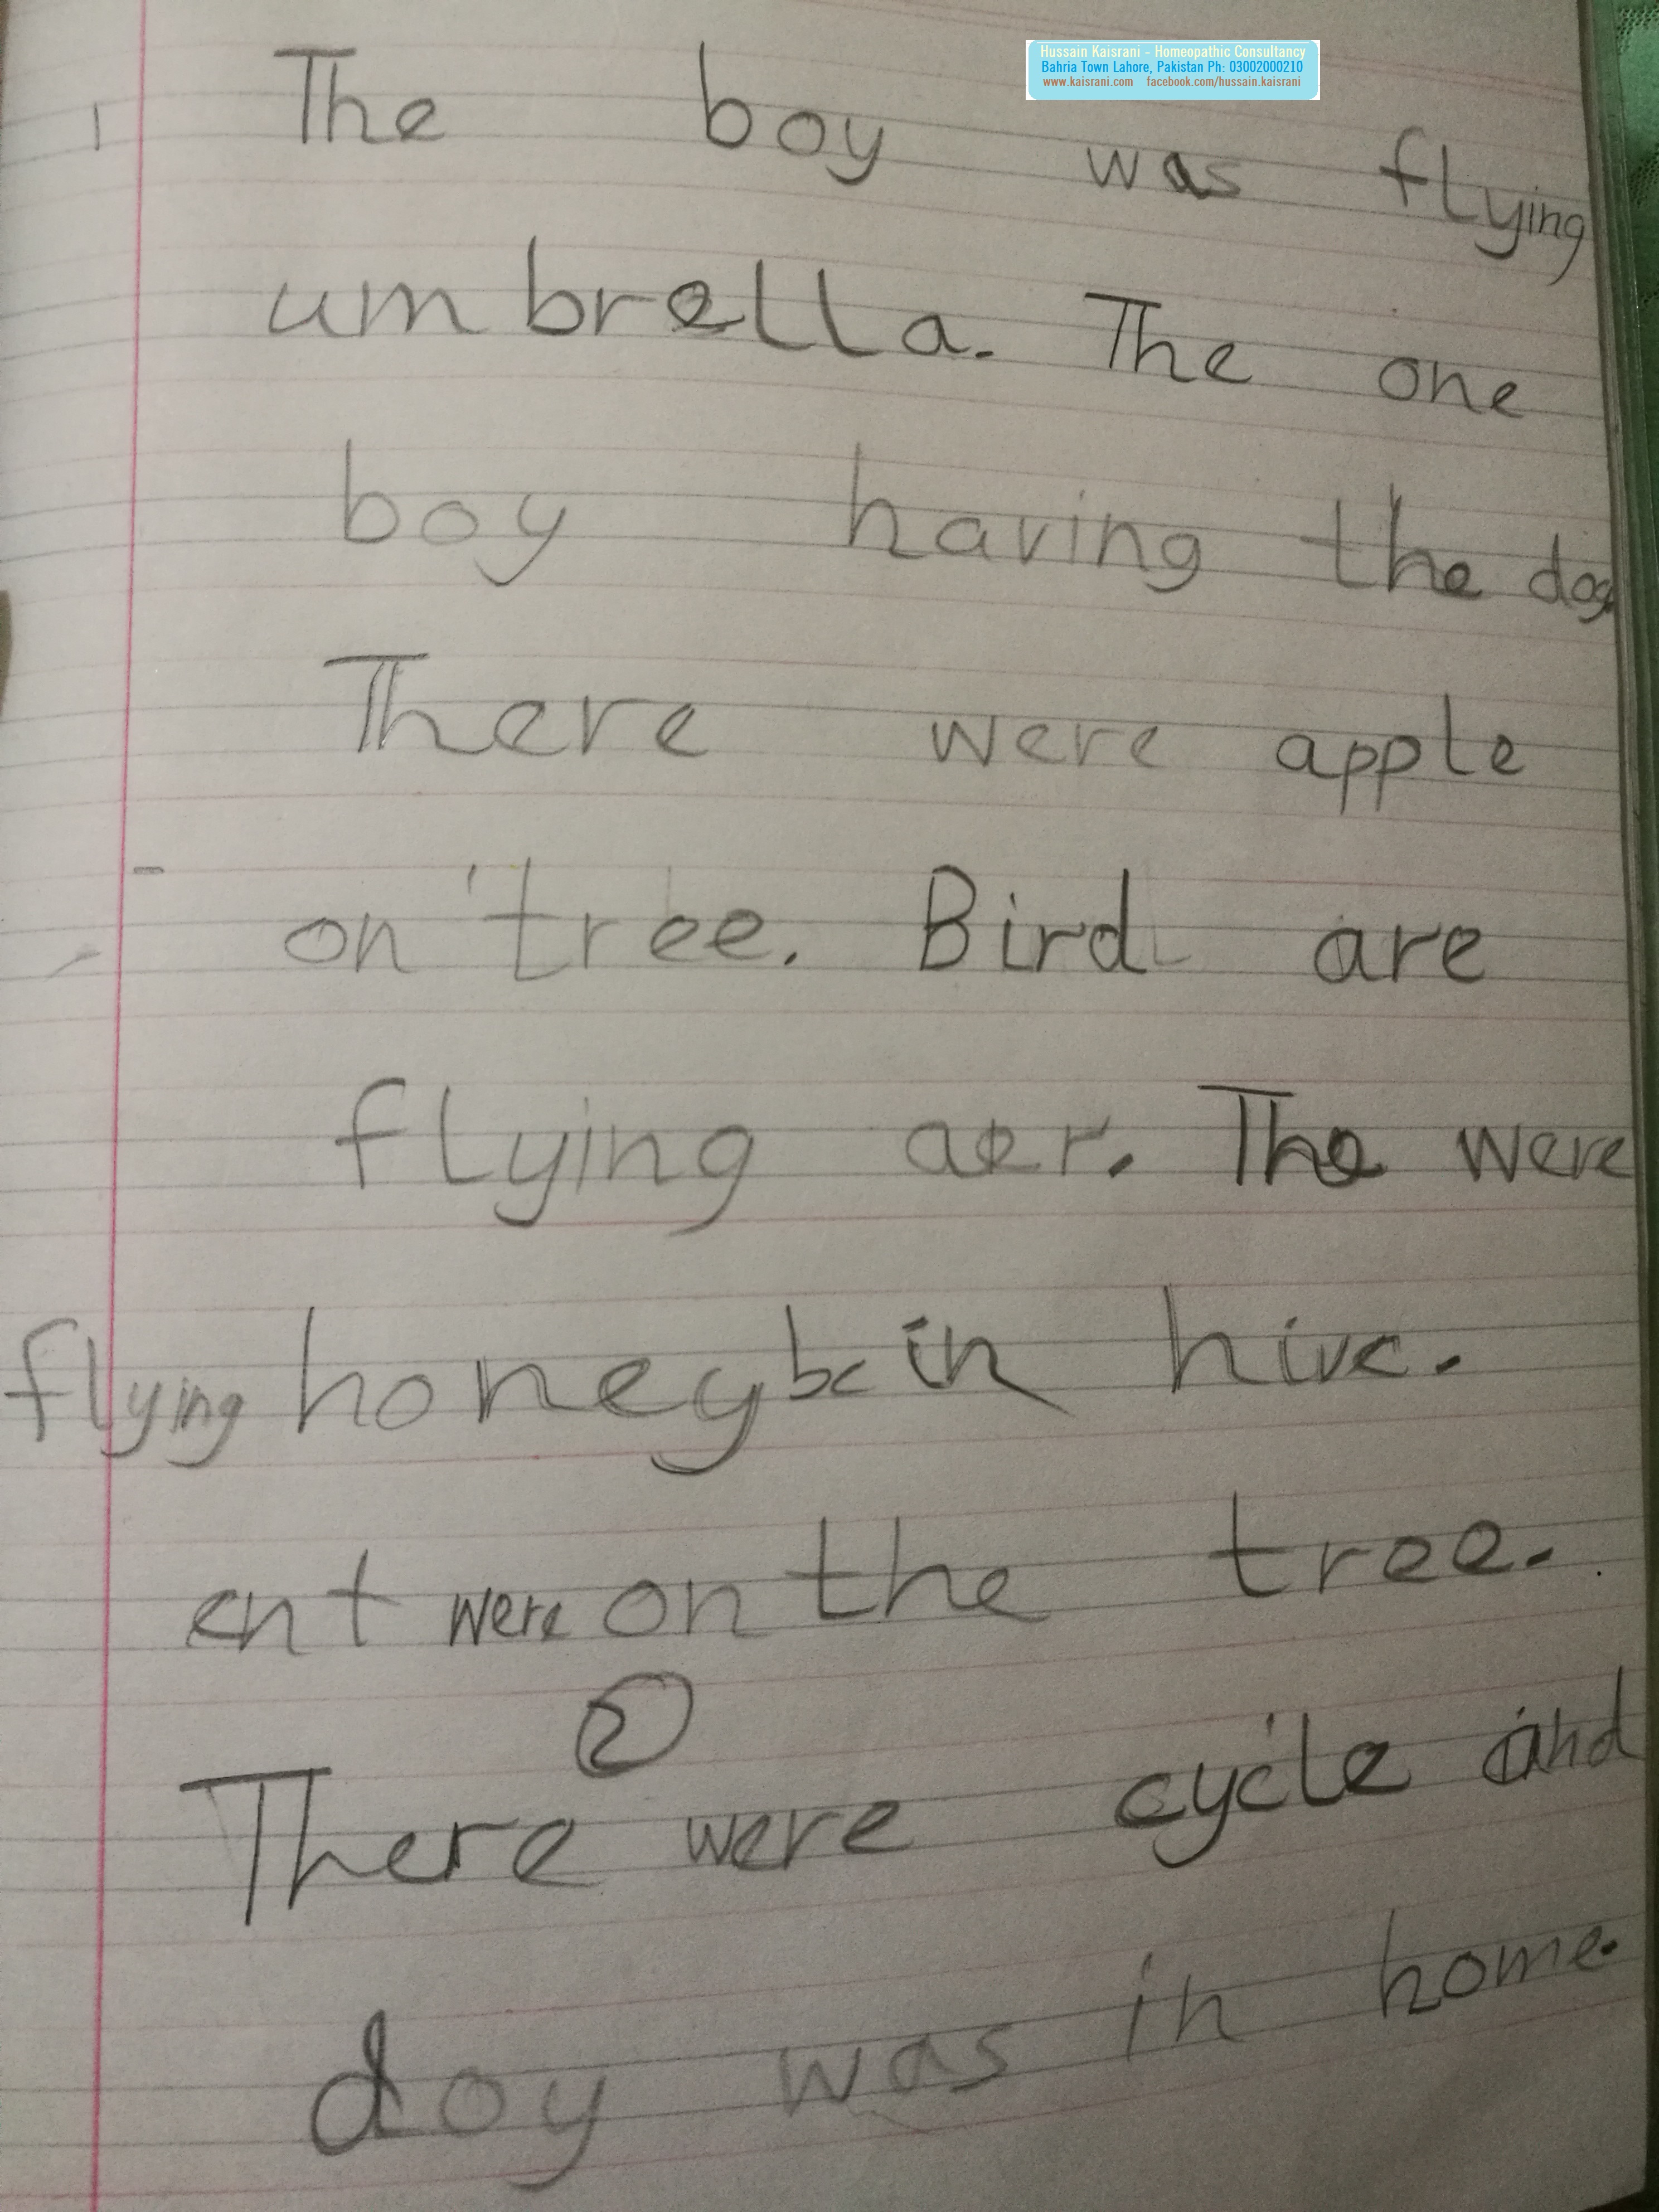 Hussain Kaisrani - Homeopathic Consultancy
Bahria Town Lahore, Pakistan Ph: 03002000210
www.kaisrani.com facebook.com/hussain.kaisrani
1 The boy was flying
umbrella. The one
boy having the dog
There were apple
on tree. Bird are
flying aer. The were
flying honeybe in hive.
ent were on the tree.
2
There were cycle and
doy was in home.